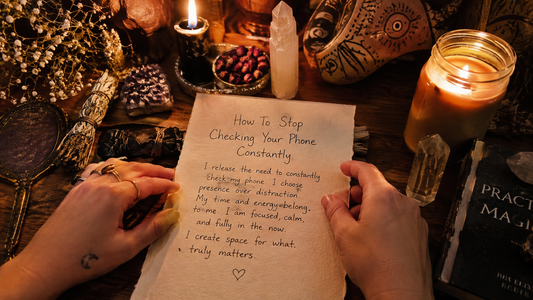 How To Stop
Checking Your Phone
Constantly
I release the need to constantly
check my phone. I choose
presence over distraction.
My time and energy belong
to me. I am focused, calm,
and fully in the now.
I create space for what
truly matters.
PRACT
MAGI